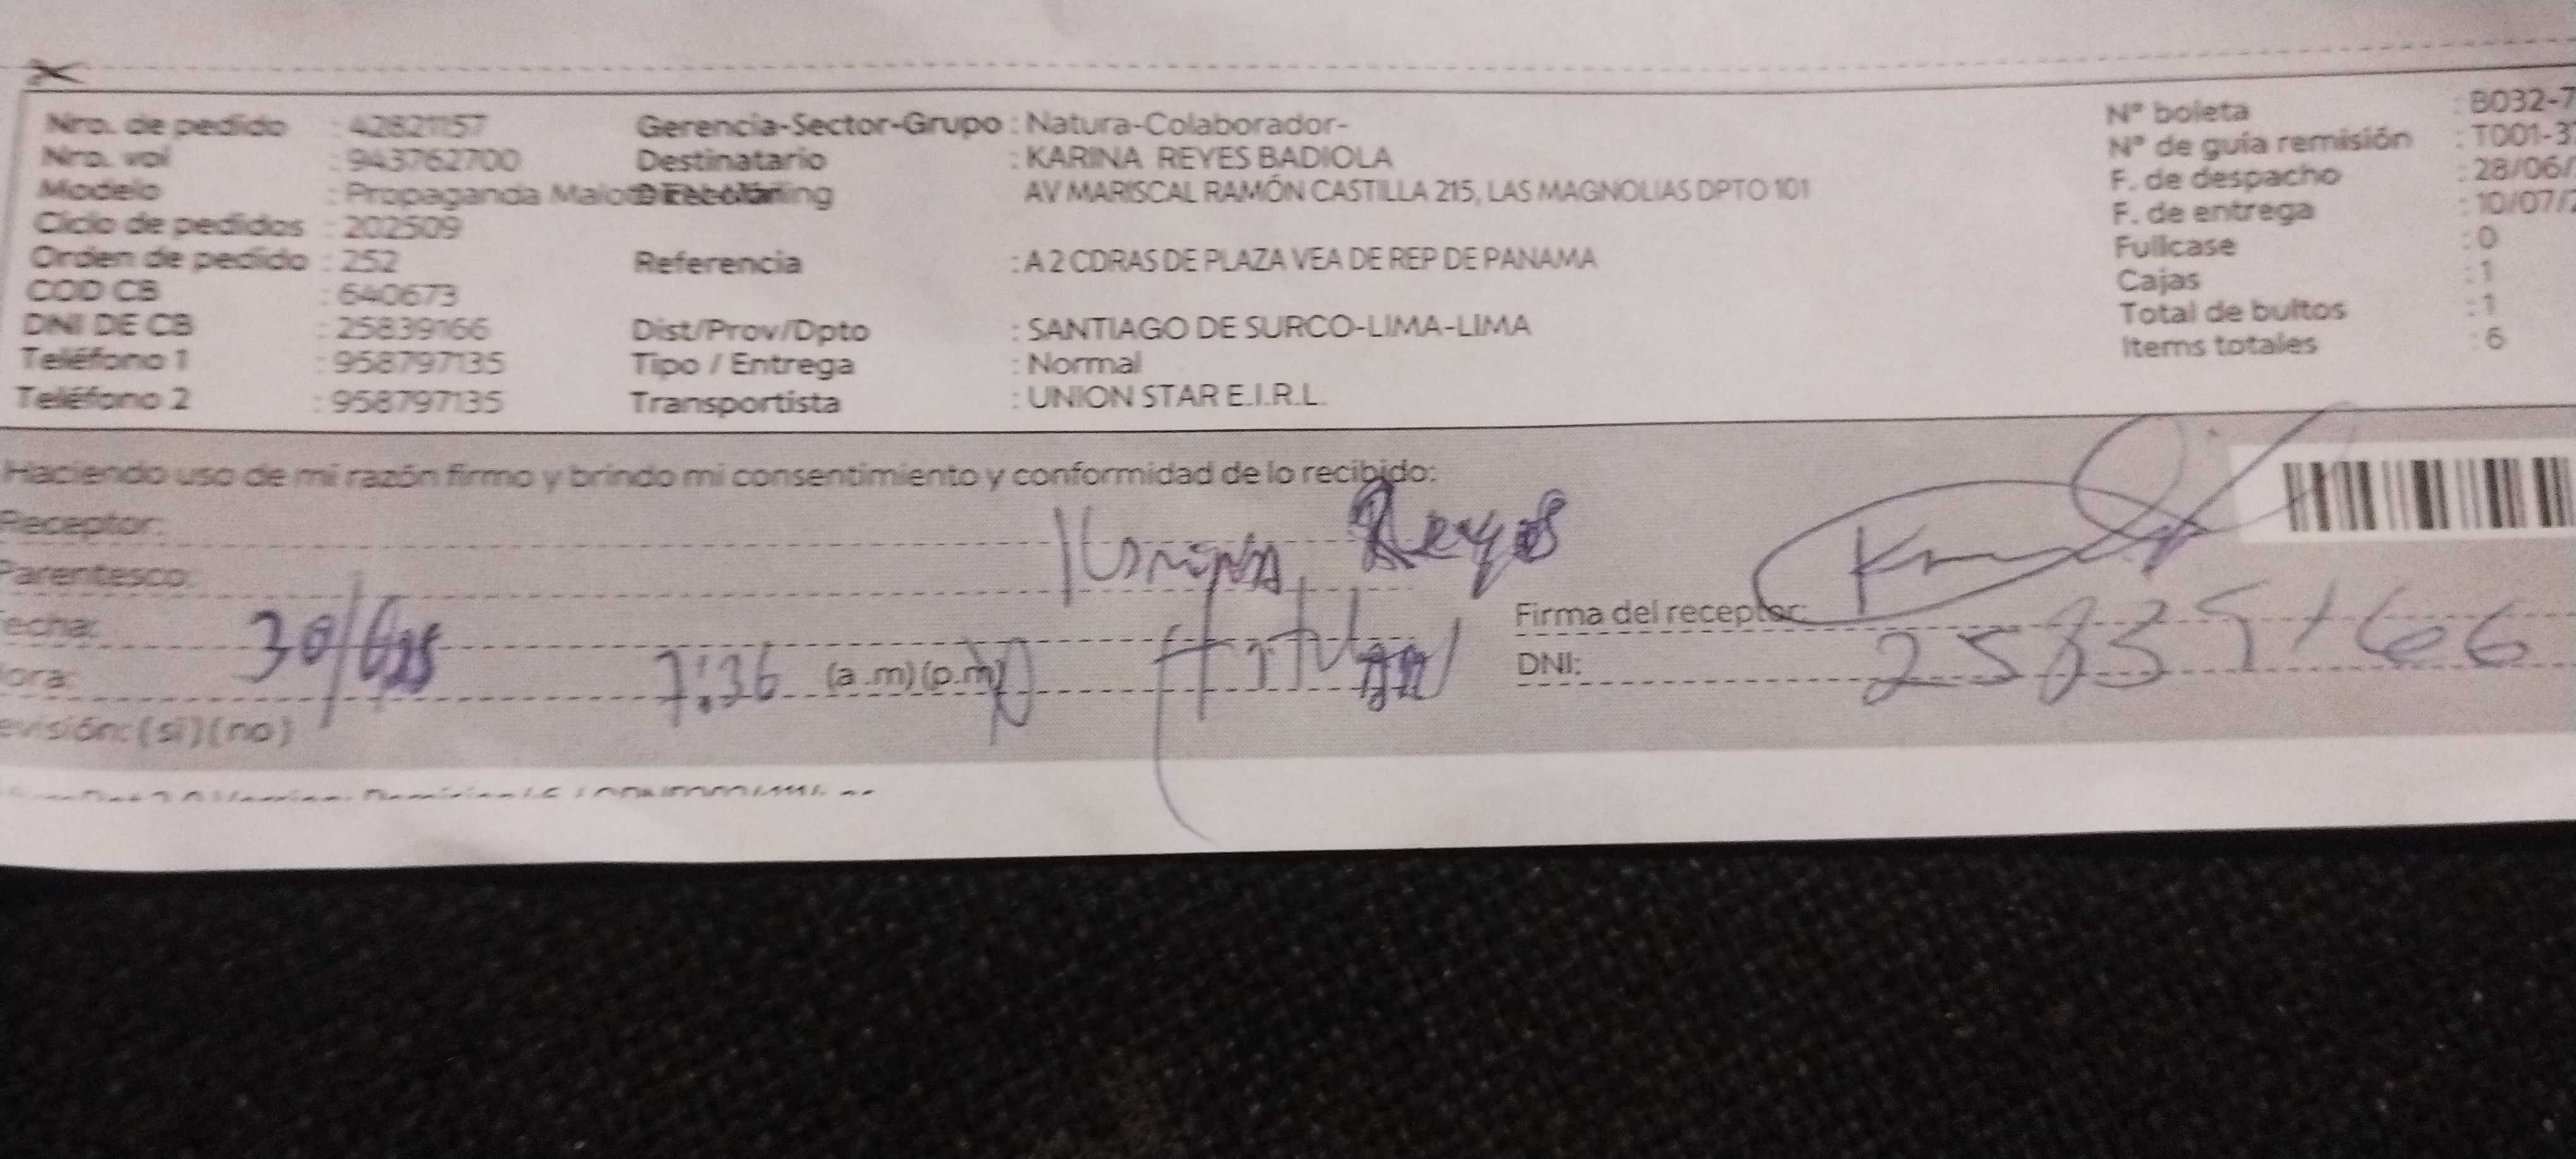 Nro. de pedido : 42821157 Gerencia-Sector-Grupo : Natura-Colaborador- N° boleta : B032-7
Nro. vol : 943762700 Destinatario : KARINA REYES BADIOLA N° de guía remisión : T001-3
Modelo : Propaganda AV MARISCAL RAMÓN CASTILLA 215, LAS MAGNOLIAS DPTO 101 F. de despacho : 28/06/
Ciclo de pedidos : 202509 F. de entrega : 10/07/2
Orden de pedido : 252 Referencia : A 2 CDRAS DE PLAZA VEA DE REP DE PANAMA Fullcase : 0
COD CB : 640673 Cajas : 1
DNI DE CB : 25839166 Dist/Prov/Dpto : SANTIAGO DE SURCO-LIMA-LIMA Total de bultos : 1
Teléfono 1 : 958797135 Tipo / Entrega : Normal Items totales : 6
Teléfono 2 : 958797135 Transportista : UNION STAR E.I.R.L.
Haciendo uso de mi razón firmo y brindo mi consentimiento y conformidad de lo recibido:
Receptor: Karina Reyes
Parentesco: titular
Firma del receptor:
echa: 30/6/25
ora: 7:36 (a.m)(p.m) DNI: 25839166
evisión: (si)(no)